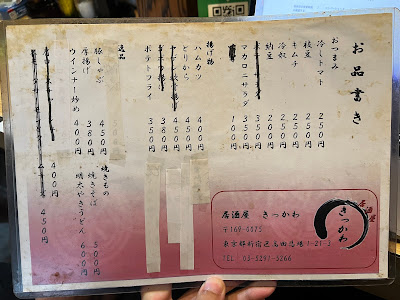 お品書き
おつまみ
冷しトマト 250円
枝豆 250円
キムチ 250円
冷奴 200円
納豆 200円
350円
マカロニサラダ 350円
100円
揚げ物
ハムカツ 400円
とりから 450円
450円
350円
ポテトフライ 350円
逸品
豚しゃぶ 450円
厚揚げ 380円
ウインナー炒め 400円
400円
450円
焼きもの
焼きそば 500円
明太やきうどん 600円
居酒屋 きっかわ
〒169-0075
東京都新宿区高田馬場1-21-3
TEL 03-5291-6266
居酒屋
きっかわ